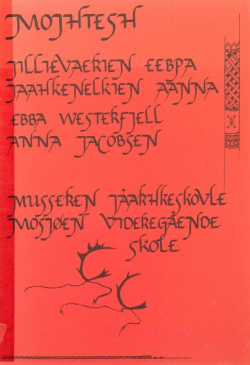 MOJHTESH
JILLIEVAERIEN EEBPA
JAAHKENELKIEN AANNA
EBBA WESTERFJELL
ANNA JACOBSEN
MUSSEREN JÅARHKESKOVLE
MOSJØEN VIDEREGÅENDE
SKOLE